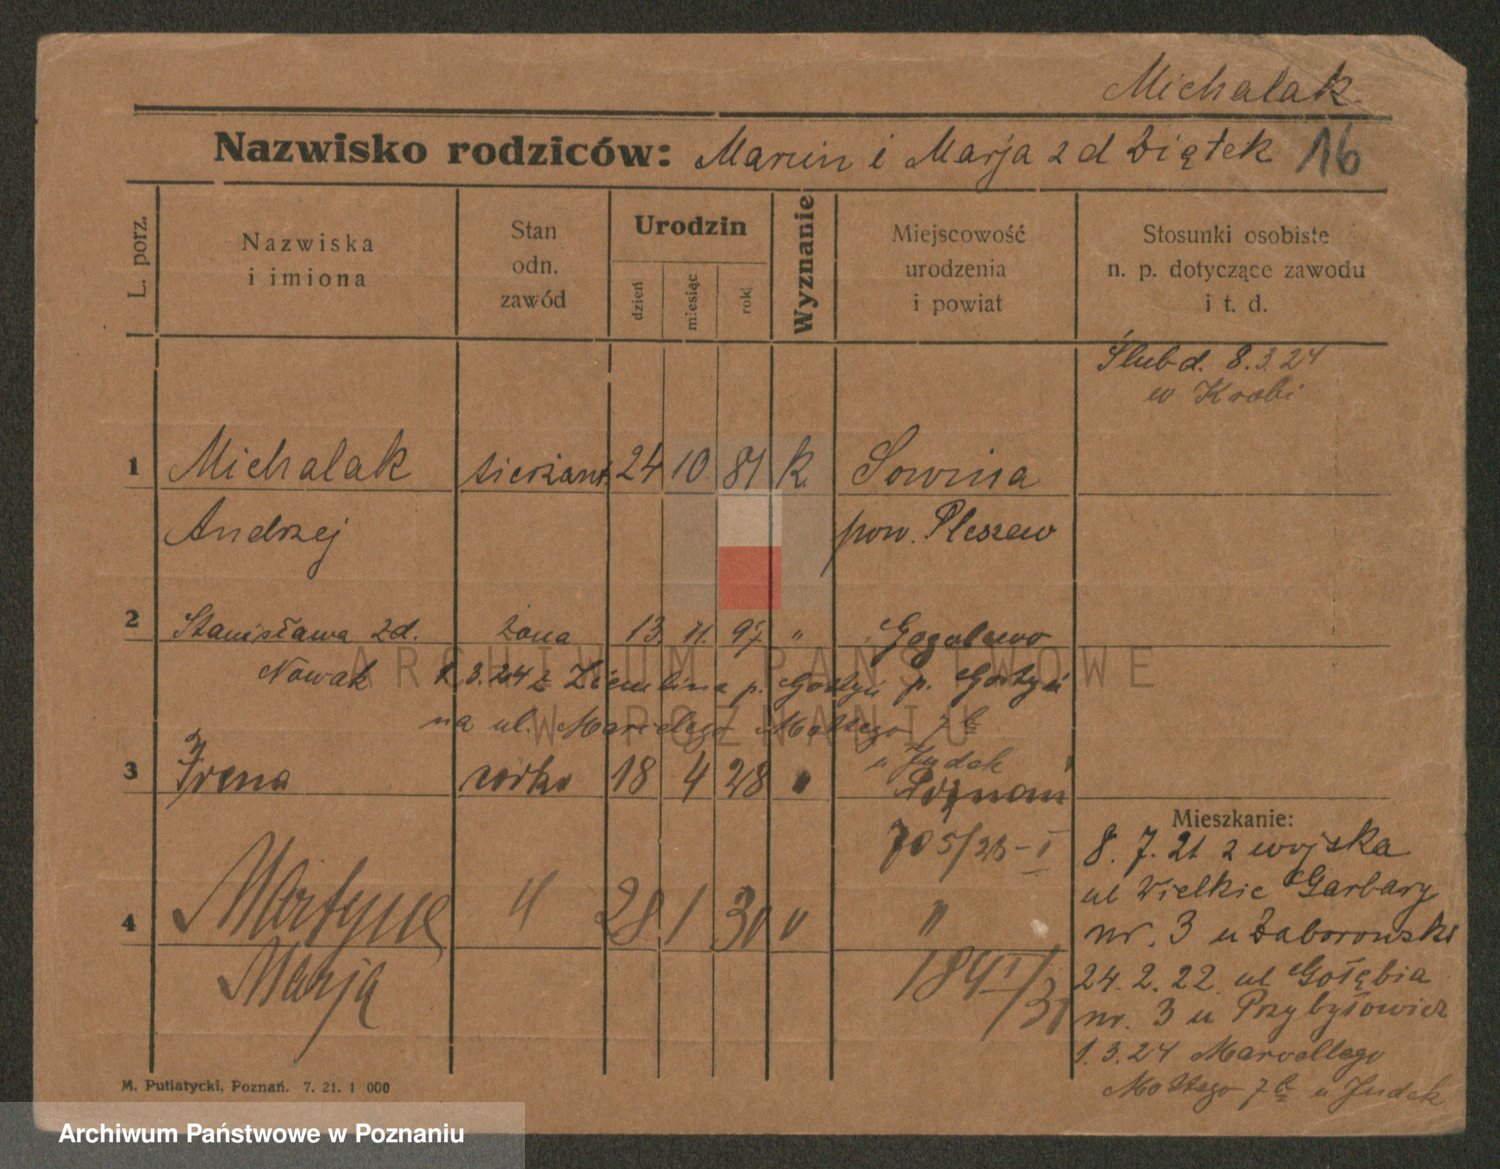 Michalak
Nazwisko rodziców: Marcin i Marja z d Piątek 16
L. porz.
Nazwiska
i imiona
Stan
odn.
zawód
Urodzin
dzień
miesiąc
rok
Wyznanie
Miejscowość
urodzenia
i powiat
Stosunki osobiste
n. p. dotyczące zawodu
i t. d.
Ślub d. 8.3.24
w Krobi
1 Michalak sierżant 24 10 81 k. Sowina
Andrzej pow. Pleszew
2 Stanisława z d. żona 13. 11. 97 " Gogolewo
Nowak 1.3.24 z Ziemlina p. Gostyń p. Gostyń
na ul. Marcelego Mottego 7 u Judek
3 Irena córka 18 4 28 " Poznań
705/28-I
4 Martyna " 28 1 30 " "
Marja 184 I/30
Mieszkanie:
8. 7. 21 z wojska
ul Wielkie Garbary
nr. 3 u Zaborowski
24. 2. 22. ul Gołębia
nr. 3 u Przybyłowicz
1. 3. 24 Marcellego
Mottego 7 u Judek
M. Putiatycki, Poznań. 7. 21. 1 000
ARCHIWUM PAŃSTWOWE
W POZNANIU
Archiwum Państwowe w Poznaniu